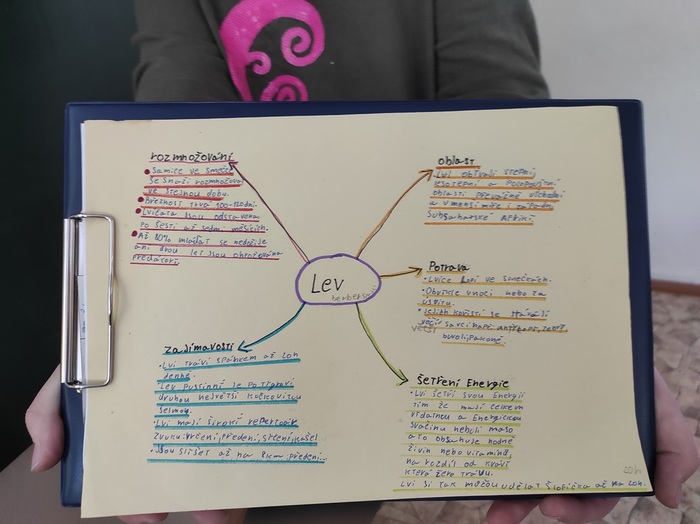 rozmnožování
• Samice ve smečce
se snaží rozmnožovat
ve stejnou dobu.
• Březnost trvá 100-120dní.
• Lvíčata jsou odstavena
po šesti až sedmi měsících.
• Až 80% mláďat se nedožije
ani dvou let jsou ohrožována
predátory.
oblast
Lvi obývají stepní
lesostepní a Polopouštní
oblasti převážně východní
a v menší míře i západní
Subsaharské Afriky
Lev
berberský
Potrava
• Lvice loví ve smečkách.
• Obvykle v noci nebo za
úsvitu.
• Jejich kořistí se stávají
větší savci např. antilopy, zebry
buvoli,
zajímavosti
• Lvi tráví spánkem až 20h
denně.
• Lev pustinný je po tygrovi
druhou největší kočkovitou
šelmou.
• Lvi mají široký repertoár
zvuků: vrčení, předení, syčení, kašel
• Jsou slyšet až na 8km
šetření Energie
• Lvi šetří svou Energii
tím že mají celkem
vydatnou a Energickou
svačinu neboli maso
a to obsahuje hodně
živin nebo vitamínů,
na rozdíl od krávy
která žere trávu.
Lvi si tak můžou udělat šlofíčka až na 20h.
20h